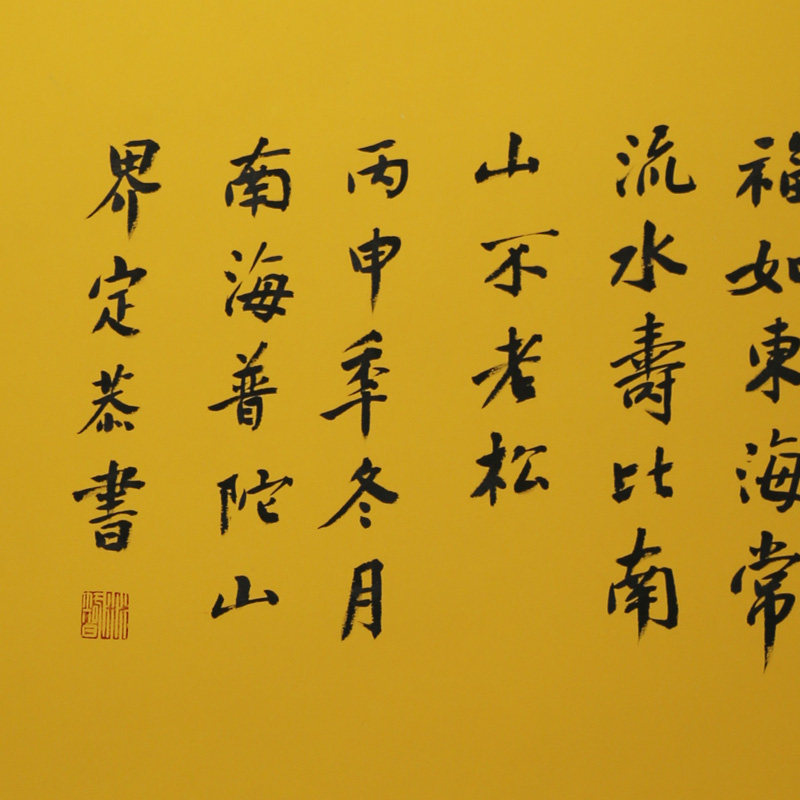 福如東海常
流水壽比南
山不老松
丙申季冬月
南海普陀山
界定恭書